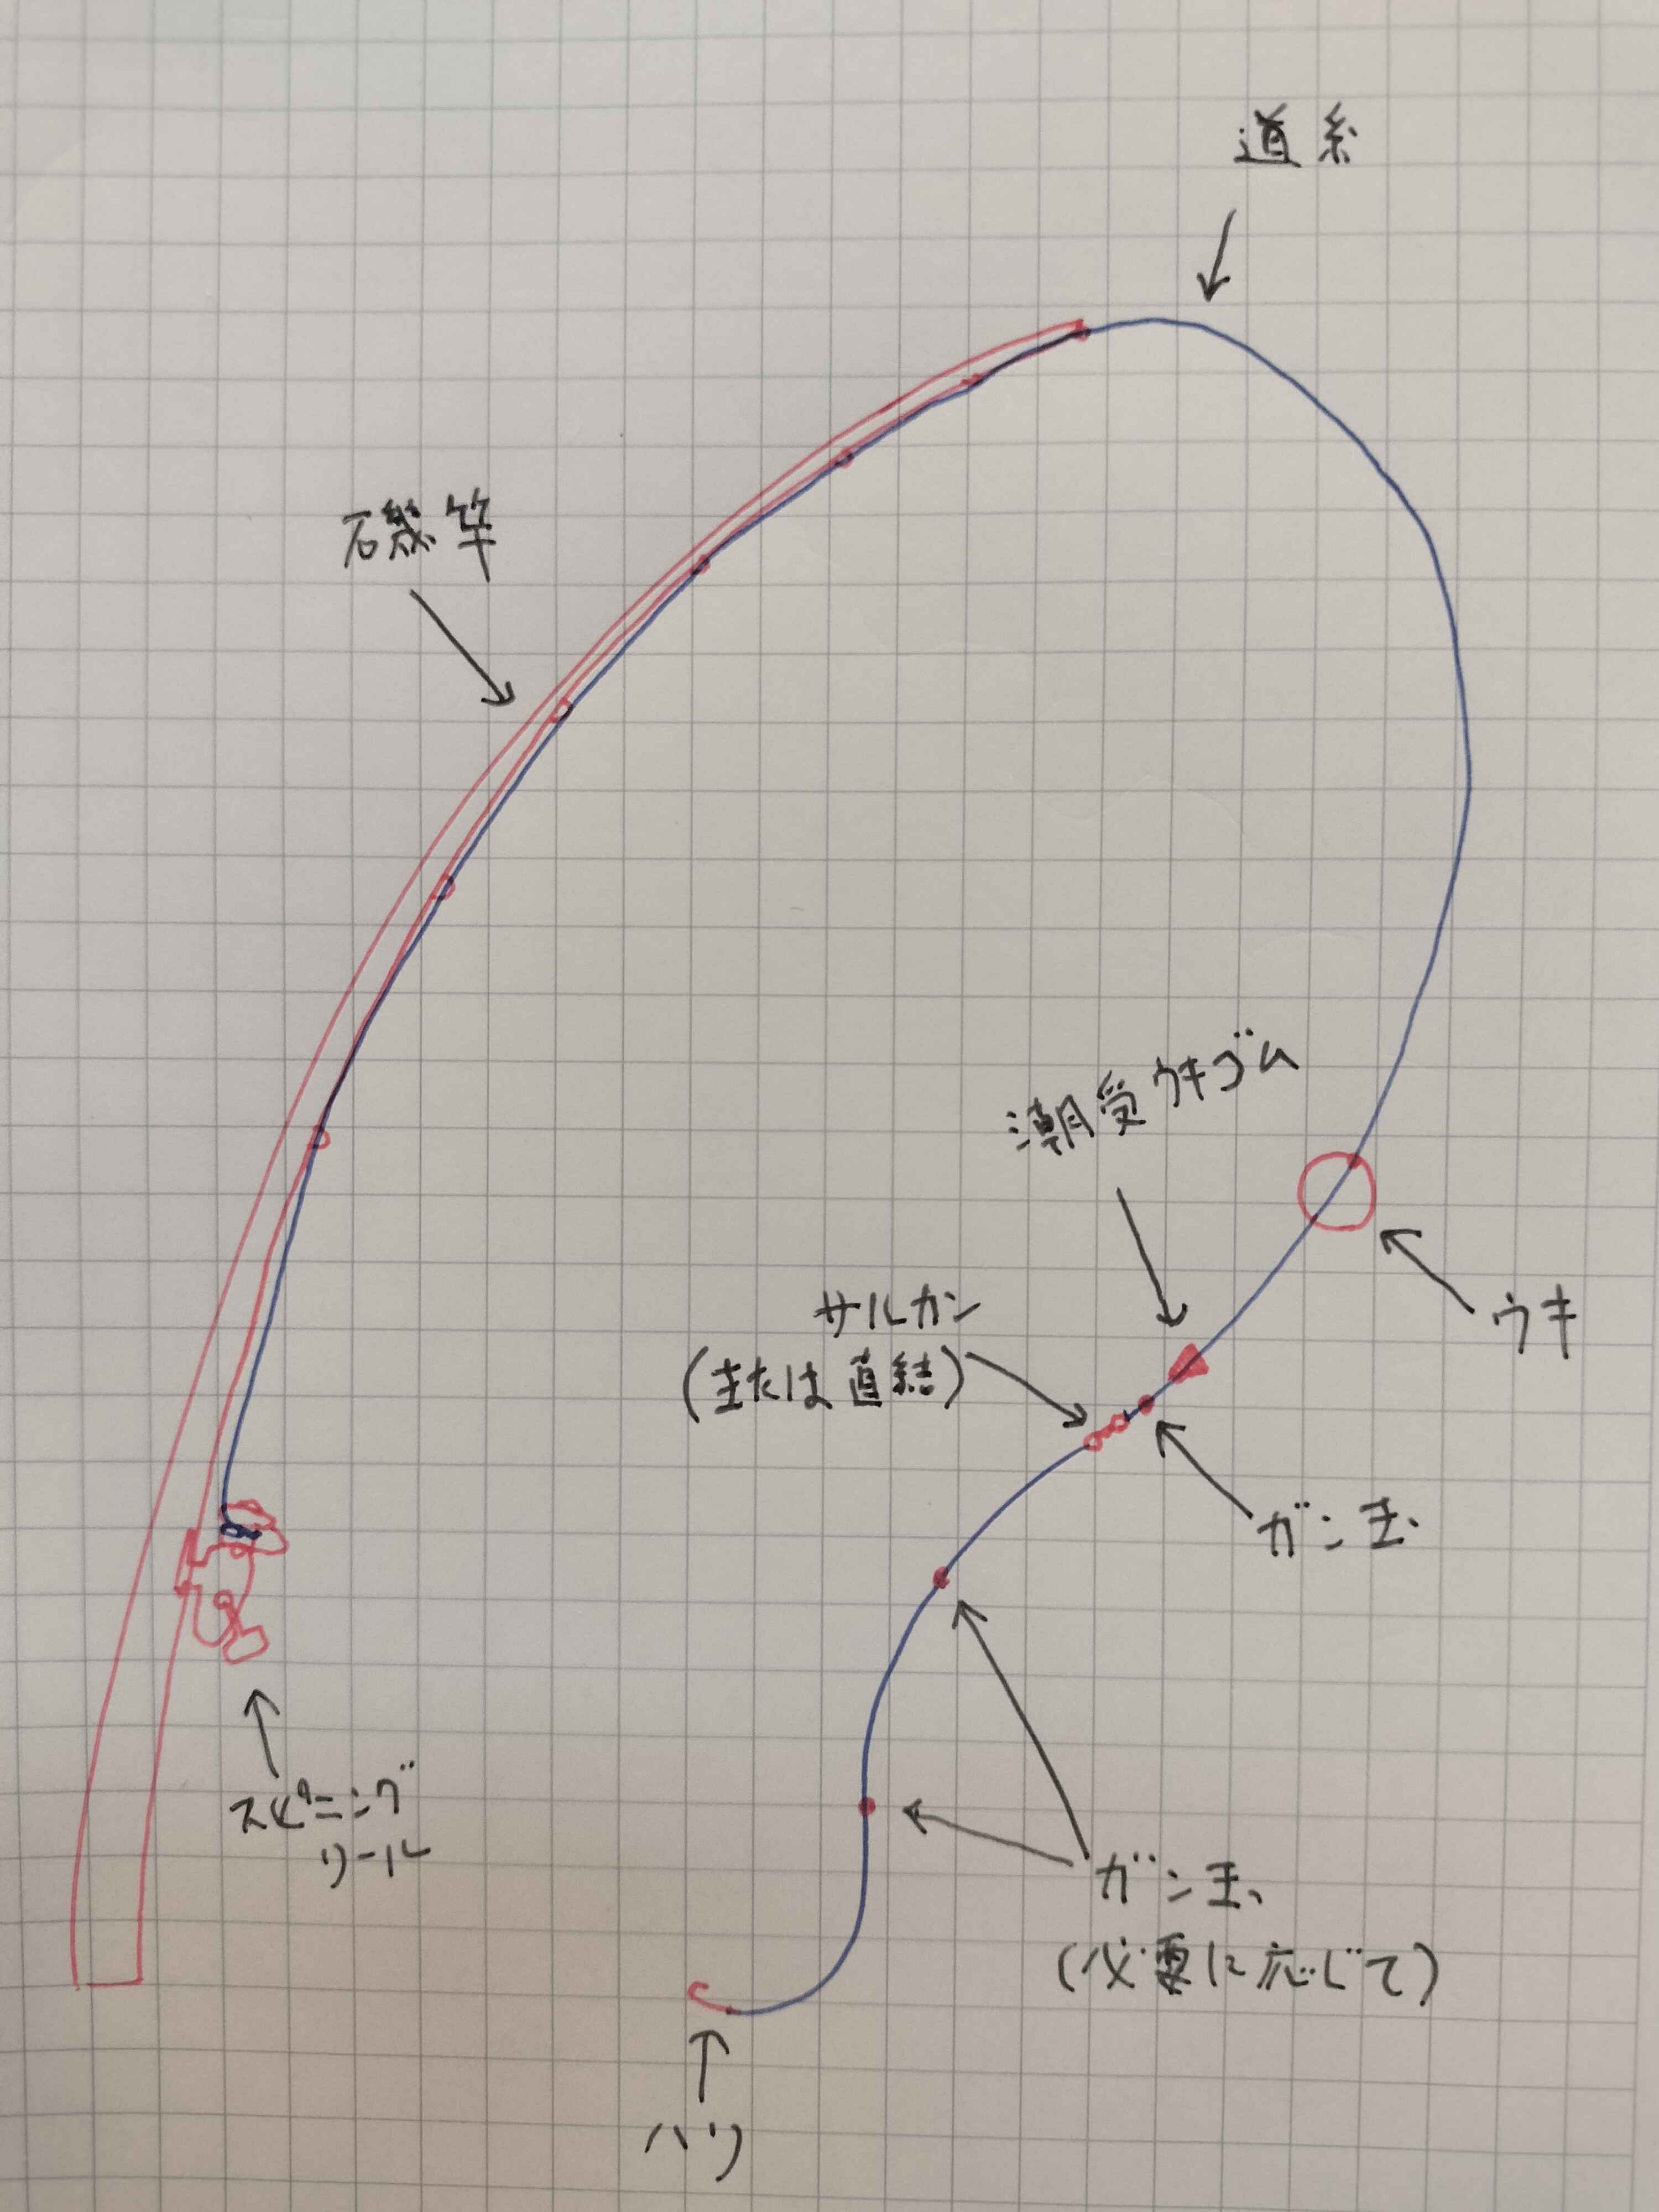 道糸
磯竿
潮受ウキゴム
ウキ
サルカン
(または直結)
ガン玉
スピニング
リール
ガン玉
(必要に応じて)
ハリ